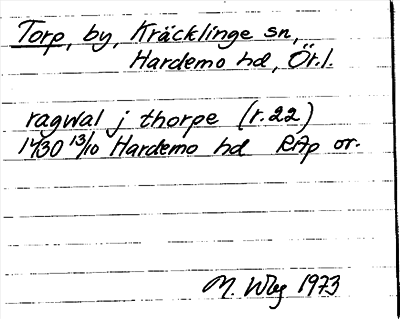 Torp, by, Kräcklinge sn,
Hardemo hd, Ör.l.
ragwal j thorpe (r.22)
1430 13/10 Hardemo hd RAp or.
M. Wbg 1973